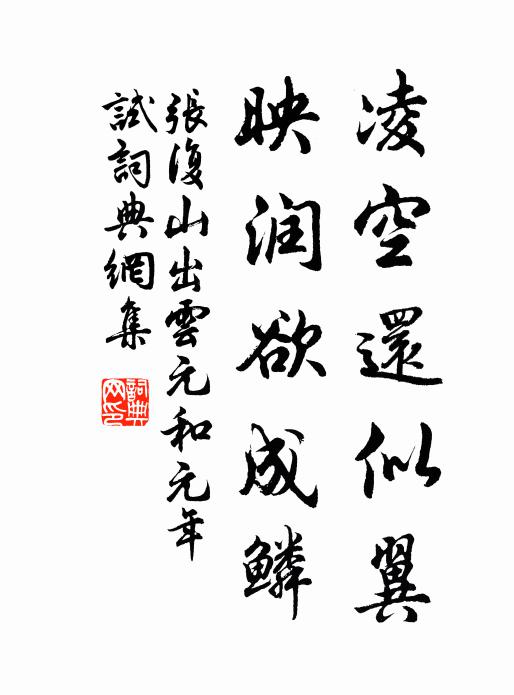 凌空還似翼
映润欲成鱗
張復山出雲元和元年
試詞典網集
詞典网印